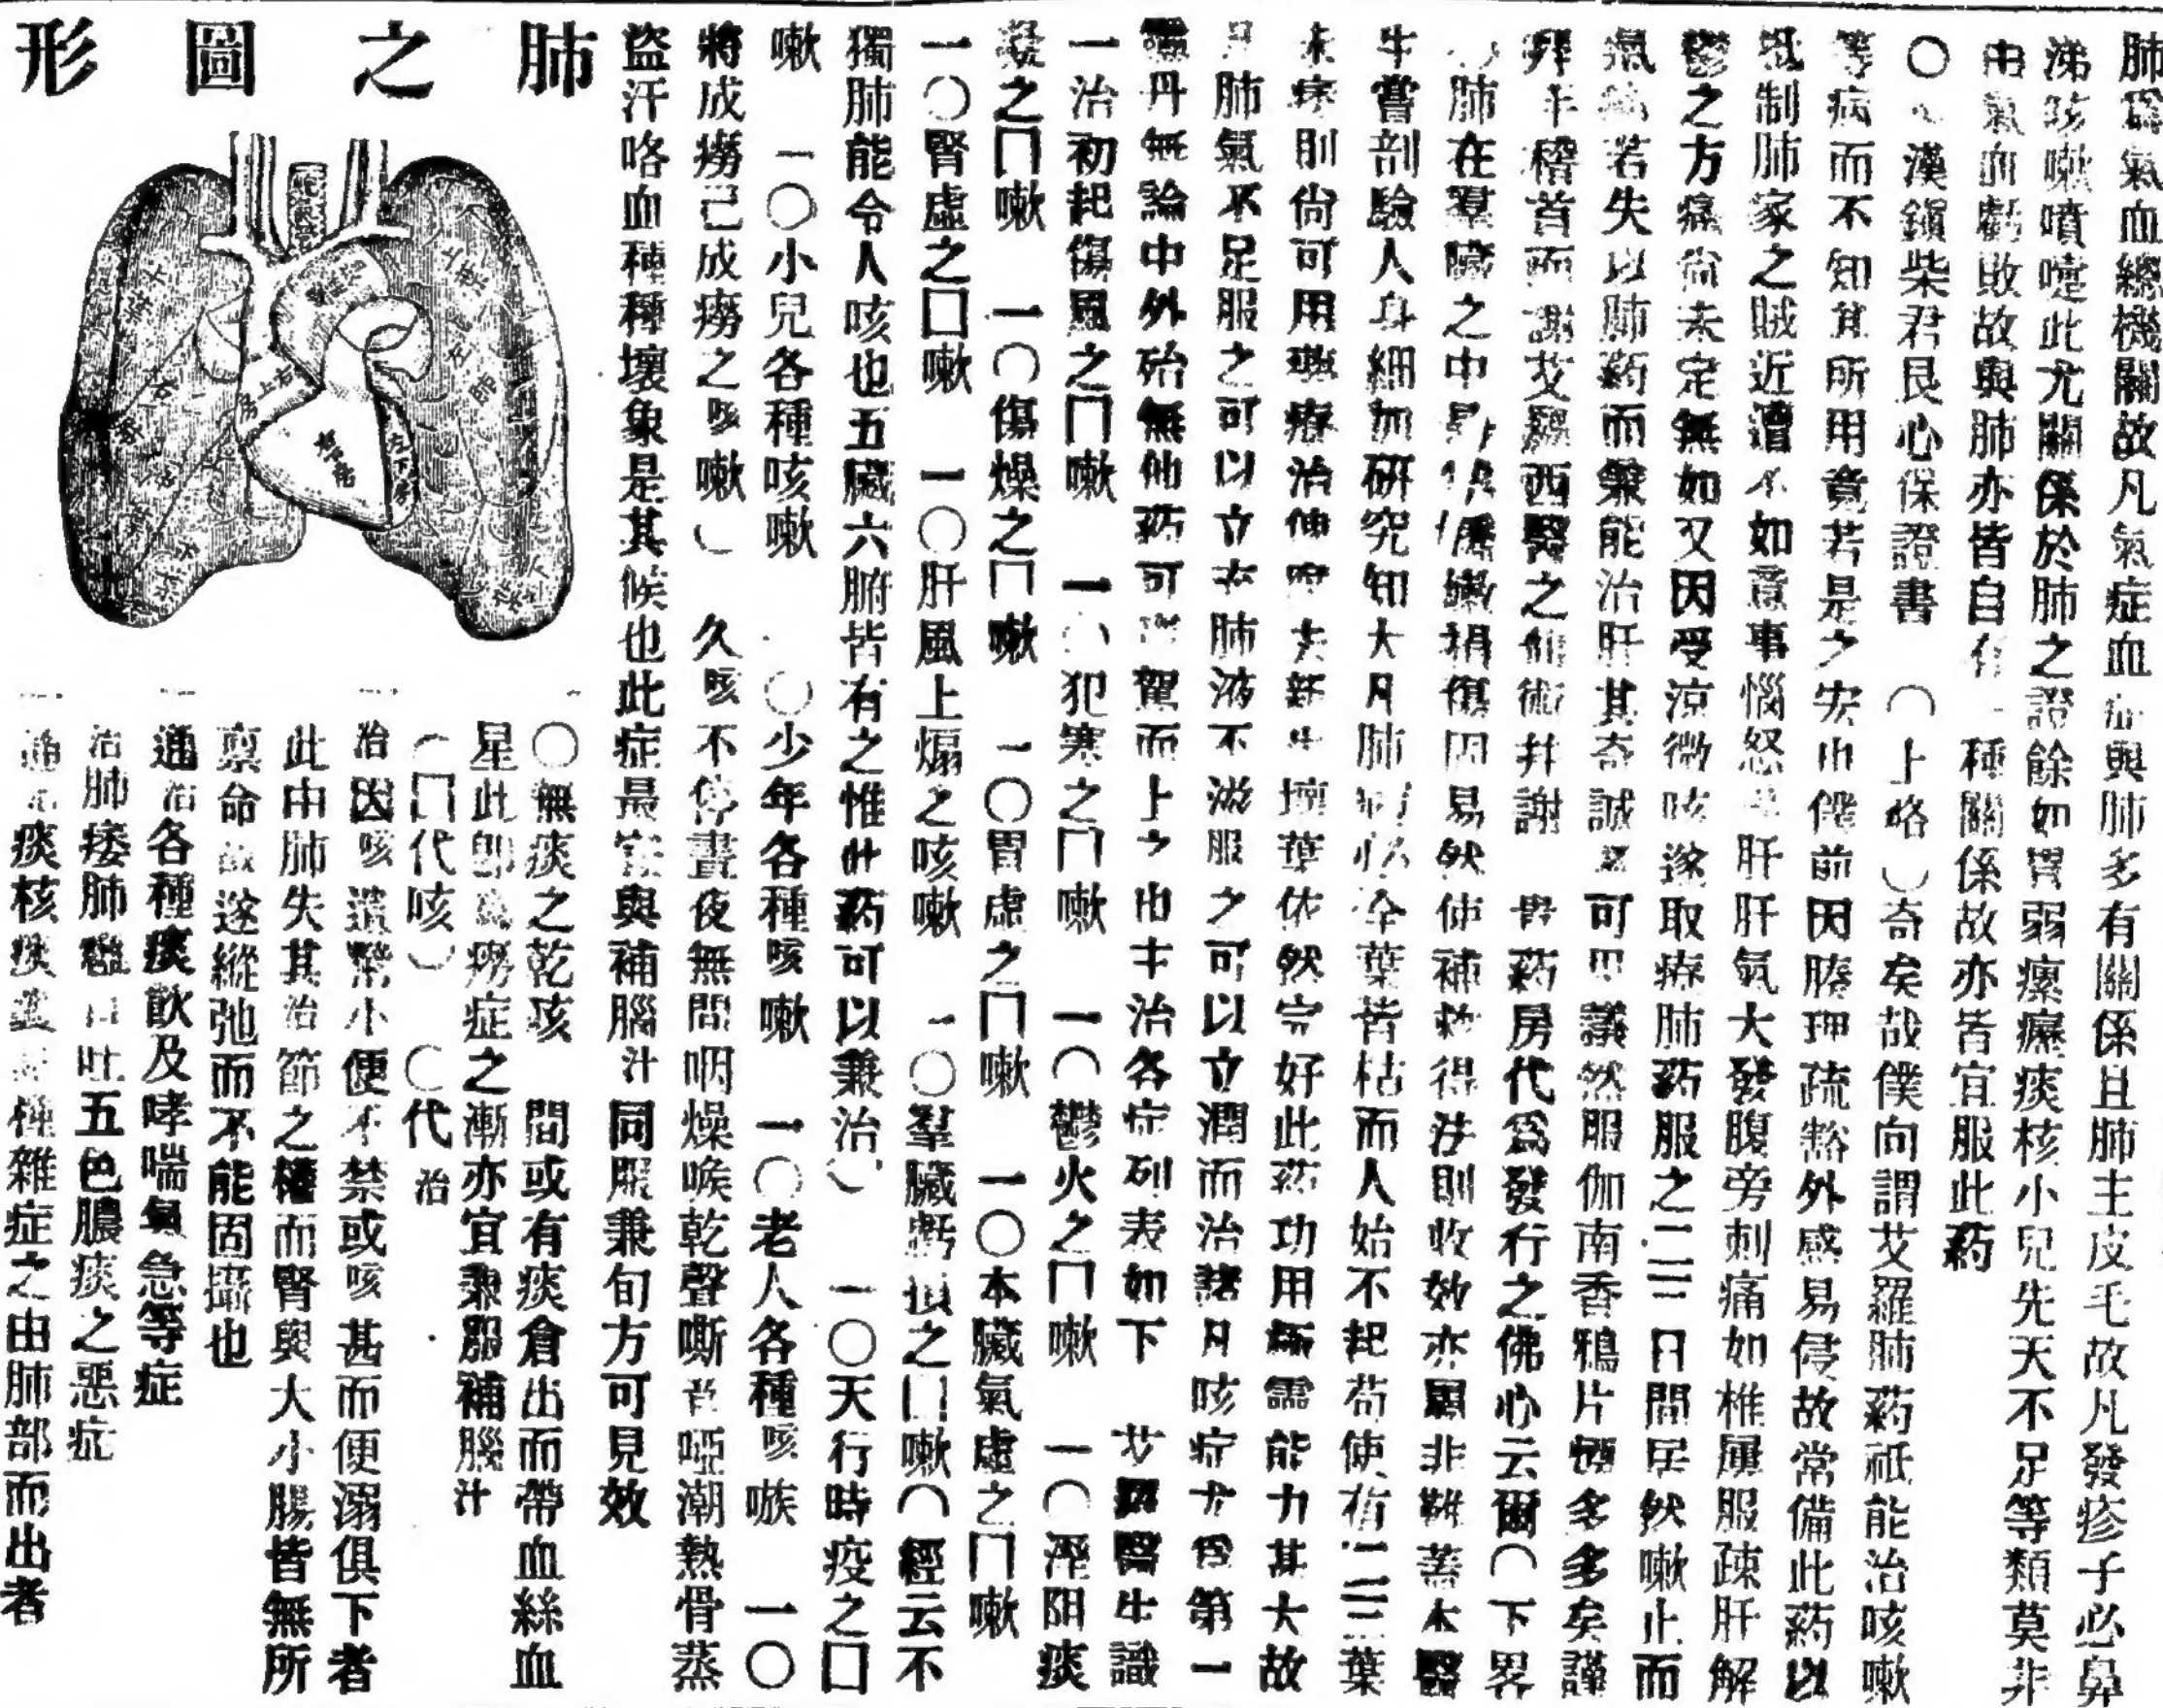 肺爲氣血總機關故凡氣症血症與肺多有關係且肺主皮毛故凡發疹子必鼻
涕咳嗽噴嚏此尤關係於肺之證餘如胃弱瘰癧痰核小兒先天不足等類莫非
由氣血虧敗故與肺亦皆自有一種關係故亦皆宜服此葯
漢鎭柴君艮心保證書 (上略)奇矣哉僕向謂艾羅肺葯祇能治咳嗽
等病而不知其所用竟若是之宏也僕前因腠理疏豁外感易侵故常備此葯以
抵制肺家之賊近遭不如意事惱怒肝肝氣大發腹旁刺痛如椎屢服疎肝解
鬱之方痛尙未定無如又因受涼微咳遂取療肺葯服之二三日間居然嗽止而
氣痛若失以肺葯而兼能治肝其奇誠不可思議然服伽南香鴉片煙多多矣謹
拜手稽首而謝艾羅西醫之仙術幷謝 葯房代爲發行之佛心云爾(下畧
肺在羣臟之中最嬌嫩損傷固易然使補救得法則收效亦屬非難蓋本醫
生嘗剖驗人身細加研究知大凡肺病必全葉皆枯而人始不起苟使有二三葉
未壞則尙可用藥療治使吸去新生壞葉依然完好此葯功用極需能力其大故
凡肺氣不足服之可以立充肺液不滋服之可以立潤而治諸凡咳症尤爲第一
靈丹無論中外殆無他葯可駕而上之也主治各症列表如下 艾羅醫生識
一治初起傷風之冂嗽 一〇犯寒之冂嗽 一〇鬱火之冂嗽 一〇溼阻痰
凝之冂嗽 一〇傷燥之冂嗽 一〇胃虛之冂嗽 一〇本臟氣虛之冂嗽
一〇腎虛之冂嗽 一〇肝風上煽之咳嗽 一〇羣臟虧損之冂嗽(經云不
獨肺能令人咳也五臟六腑皆有之惟此葯可以兼治) 一〇天行時疫之冂
嗽 一〇小兒各種咳嗽 一〇少年各種咳嗽 一〇老人各種咳嗽 一〇
將成癆已成癆之咳嗽(久咳不停晝夜無間咽燥喉乾聲嘶音啞潮熱骨蒸
盜汗咯血種種壞象是其候也此症最宜與補腦汁同服兼旬方可見效
肺之圖形
一〇無痰之乾咳 間或有痰倉出而帶血絲血
星此卽爲癆症之漸亦宜兼服補腦汁
(冂代咳) 〇代治
一治因咳遺溺小便不禁或咳甚而便溺俱下者
此由肺失其治節之權而腎與大小腸皆無所
禀命故遂縱弛而不能固攝也
一通治各種痰飮及哮喘氣急等症
一治肺痿肺癰口吐五色膿痰之惡症
一通治痰核痰種雜症之由肺部而出者